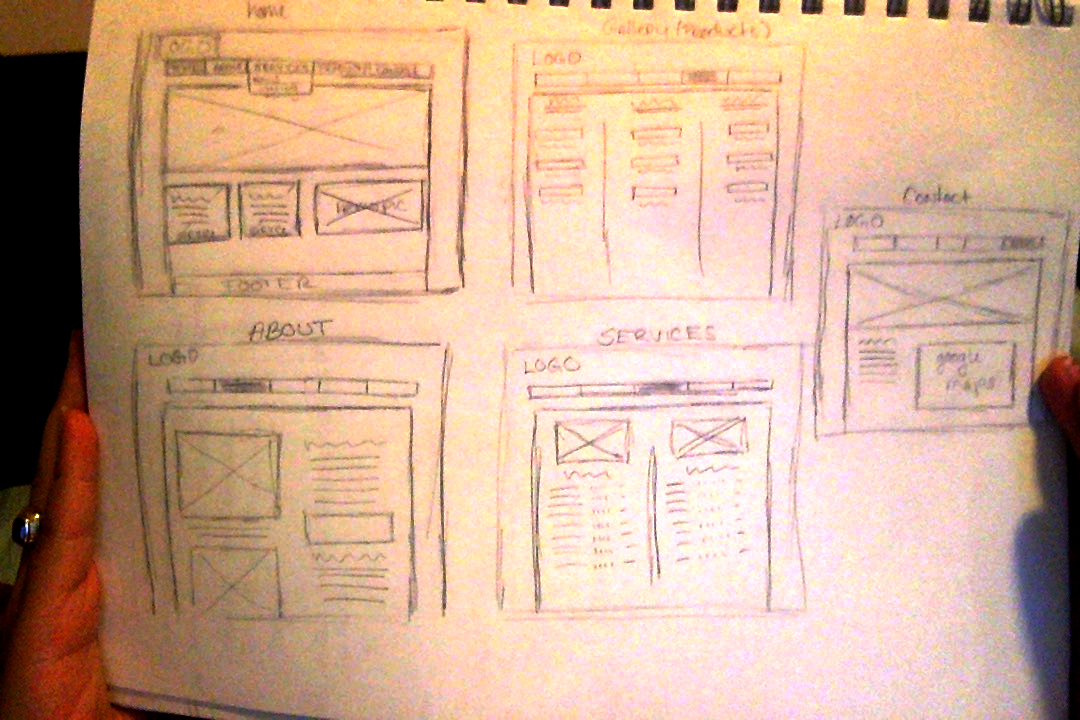 home
LOGO
HOME ABOUT SERVICES CONTACT
FOOTER
Gallery (Products)
LOGO
Contact
LOGO
google
maps
ABOUT
LOGO
SERVICES
LOGO